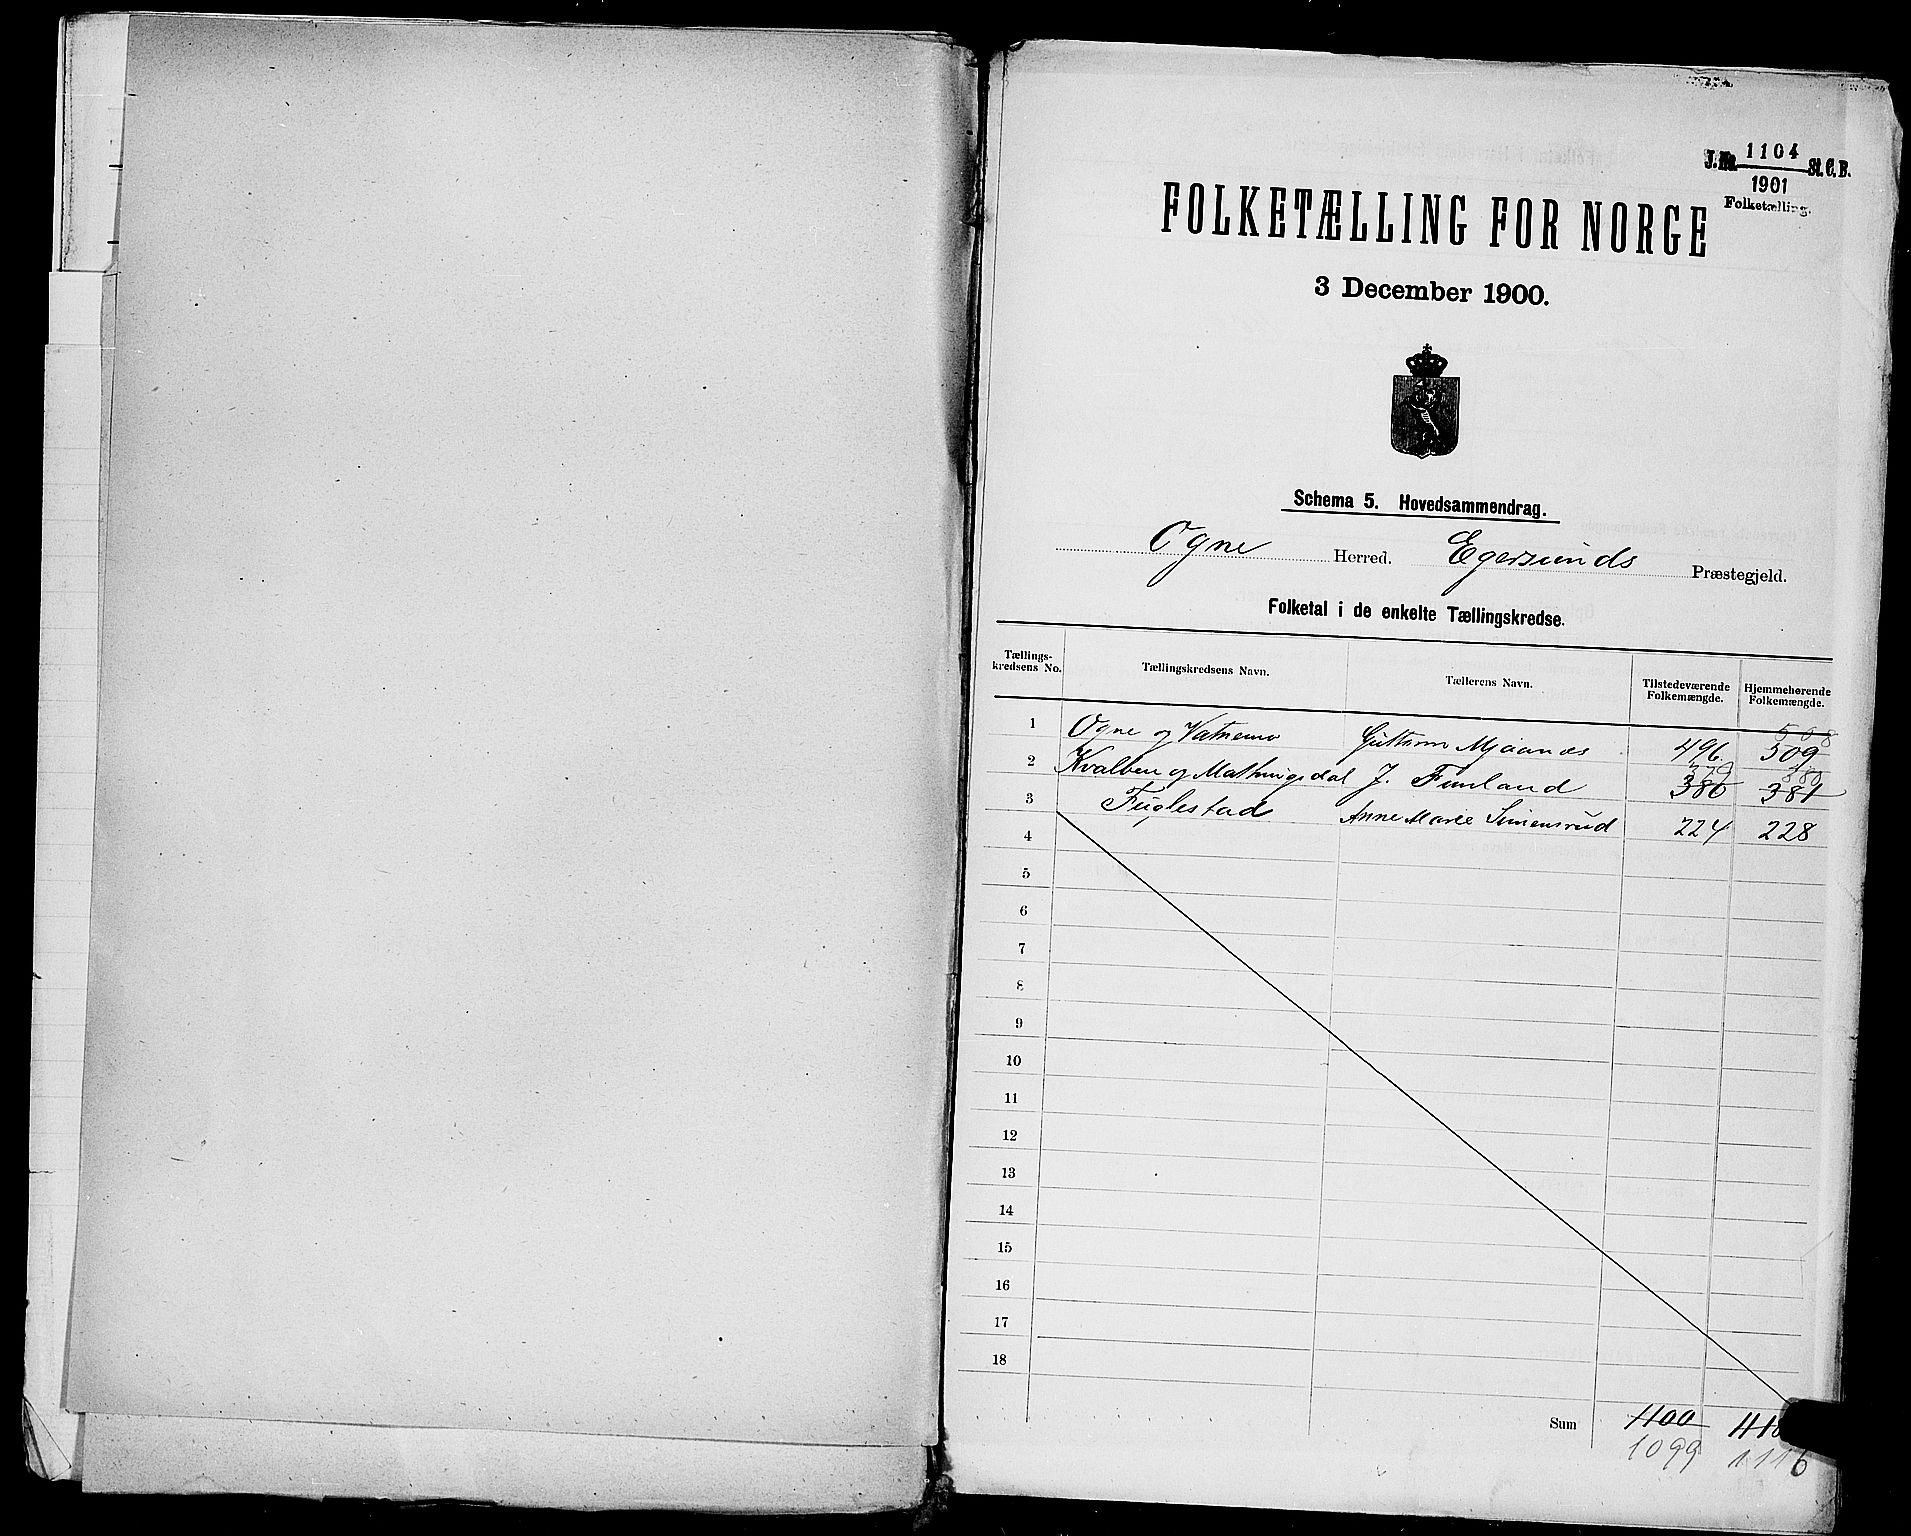 J.No. 1104 St.C.B.
1901
Folketælling.
FOLKETÆLLING FOR NORGE
3 December 1900.
Schema 5. Hovedsammendrag.
Ogne Herred. Egersunds Præstegjeld.
Folketal i de enkelte Tællingskredse.
Tællings-kredsens No. Tællingskredsens Navn. Tællerens Navn. Tilstedeværende Folkemængde. Hjemmehørende Folkemængde.
508
1 Ogne og Vatnemo Guttorm Mjaanes 496 509
379 380
2 Kvalben og Mathingsdal J. Fuuland 380 381
3 Fuglestad Anne Marie Simensrud 224 228
4
5
6
7
8
9
10
11
12
13
14
15
16
17
18
Sum 1100
1099 1116